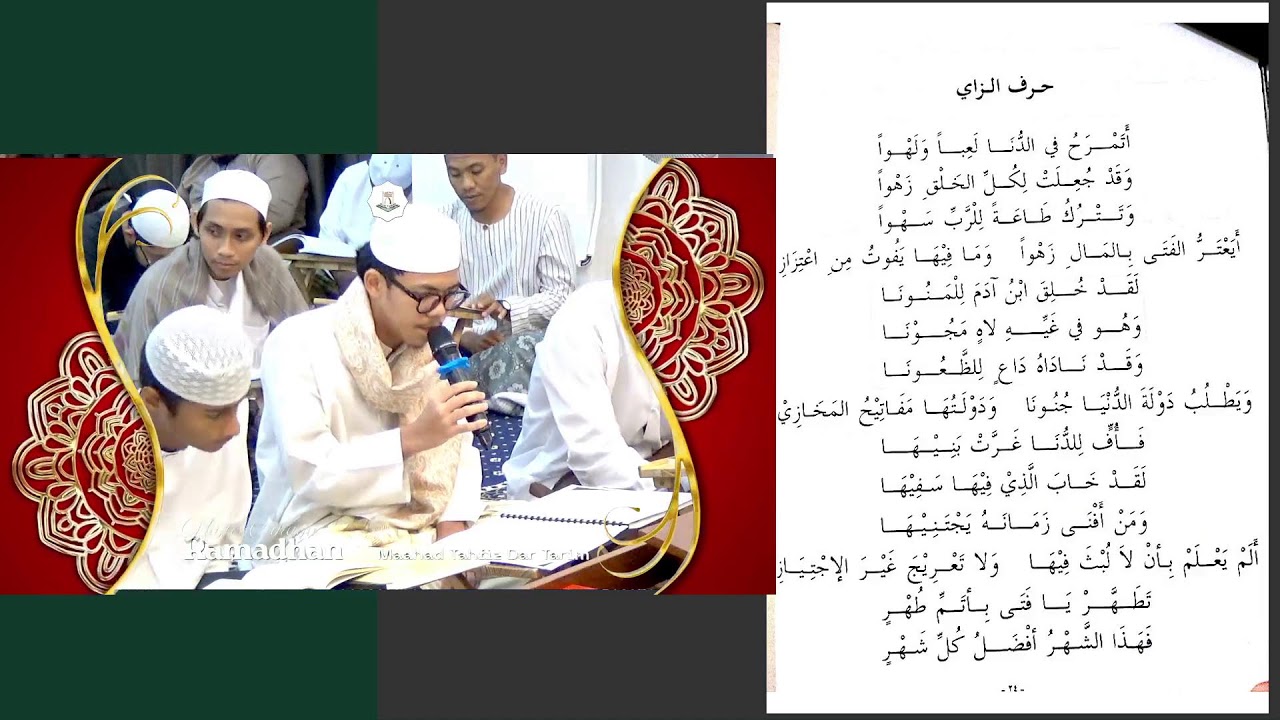 Ramadhan
Maahad Tahfiz Dar Tarim
حرف الزاي
أَتَمْرَحُ في الدُّنَا لَعِباً وَلَهْواً
وَقَدْ جُعِلَتْ لِكُلِّ الخَلْقِ زَهْواً
وَتَتْرُكُ طَاعَةً لِلْرَّبِّ سَهْواً
أَيَعْتَرُّ الفَتَى بِالمَالِ زَهْواً وَمَا فِيْهَا يَفُوتُ مِنِ اعْتِزَازِ
لَقَدْ خُلِقَ ابْنُ آدَمَ لِلْمَنُونَا
وَهُو في غَيِّهِ لاهٍ مَجُوْنَا
وَقَدْ نَادَاهُ دَاعٍ لِلظَّعُونَا
وَيَطْلُبُ دَوْلَةَ الدُّنْيَا جُنُونَا وَدَوْلَتُهَا مَفَاتِيْحُ المَخَازِيْ
فَأُفٍّ لِلدُّنَا غَرَّتْ بَنِيْهَا
لَقَدْ خَابَ الَّذِيْ فِيْهَا سَفِيْهَا
وَمَنْ أَفْنَى زَمَانَهُ يَجْتَنِيْهَا
أَلَمْ يَعْلَمْ بِأَنْ لاَ لُبْثَ فِيْهَا وَلا تَعْرِيجِ غَيْرَ الاِجْتِيَازِ
تَطَهَّرْ يَا فَتَى بِأَتَمِّ طُهْرٍ
فَهَذَا الشَّهْرُ أَفْضَلُ كُلِّ شَهْرٍ
- ٢٤ -